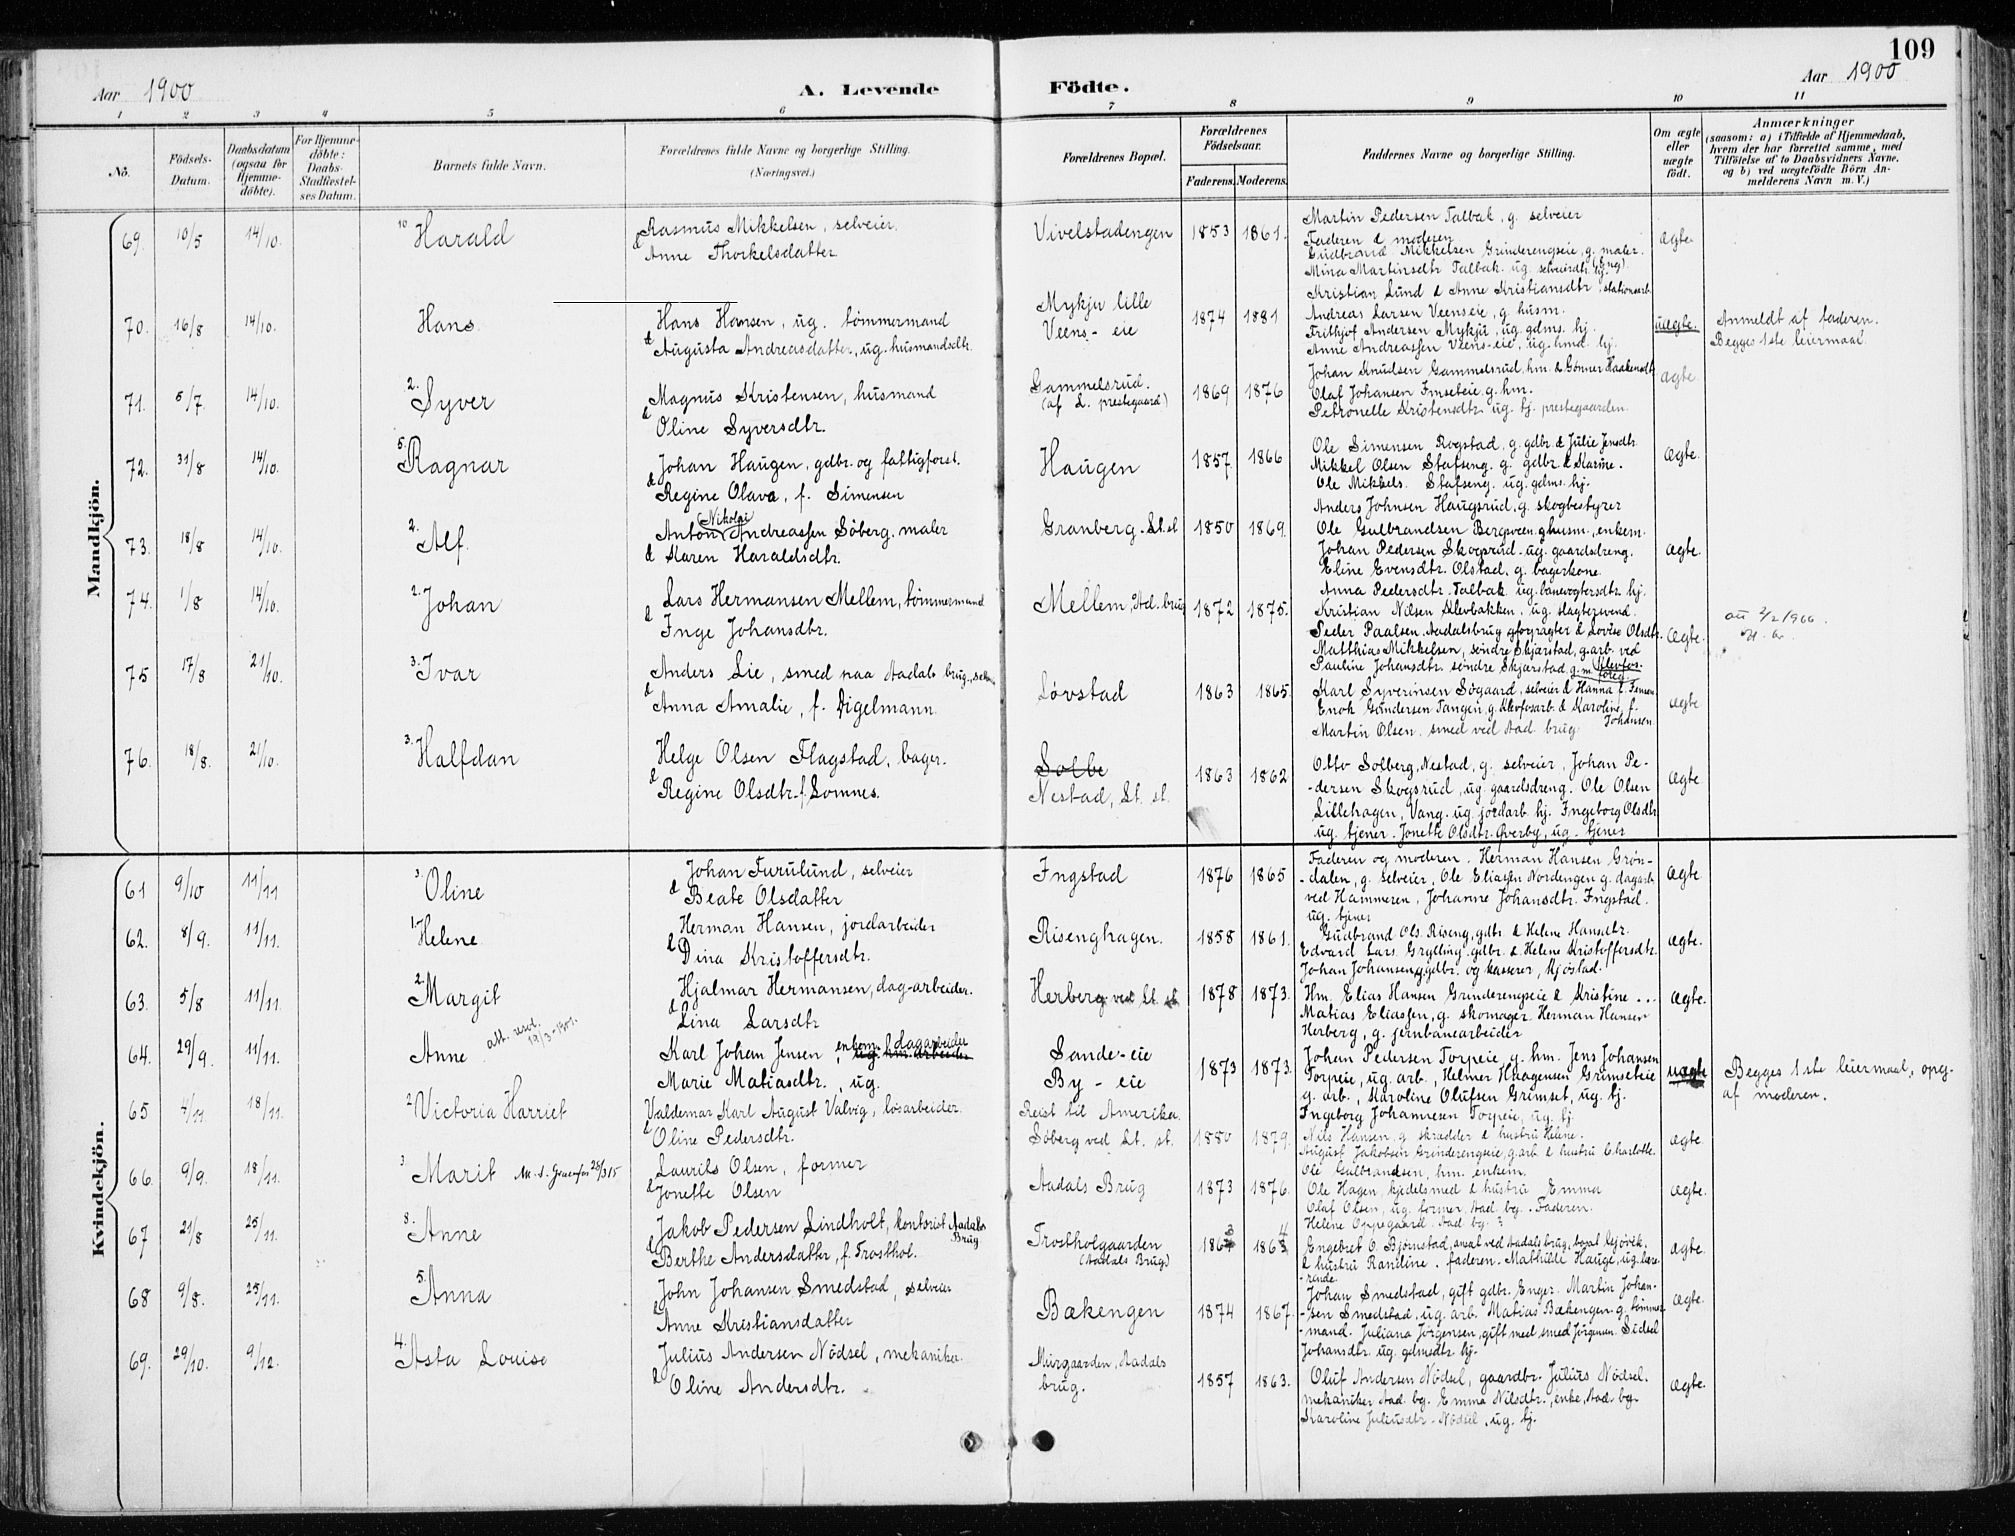 109
Aar 1900
A. Levende Födte.
Aar 1900
1 2 3 4 5 6 7 8 9 10 11
No.
Födsels-Datum.
Daabsdatum (ogsaa for Hjemme-döbte).
For Hjemme-döbte: Daabs-Stadfæstel-ses Datum.
Barnets fulde Navn.
Forældrenes fulde Navne og borgerlige Stilling.
(Næringsvei.)
Forældrenes Bopæl.
Forældrenes Födselsaar.
Faderens. Moderens.
Faddernes Navne og borgerlige Stilling.
Om ægte eller uægte født.
Anmærkninger
(saasom: a) i Tilfælde af Hjemmedaab,
hvem der har forrettet samme, med
Tilföielse af to Daabsvidners Navne,
og b) ved uægtefödte Börn An-
melderens Navn m. V.)
Mandkjön.
69. 10/5 14/10. 10 Harald
Rasmus Mikkelsen, selveier.
& Anne Thorkelsdatter
Vivelstadengen 1853 1861.
Martin Pedersen Talbak, g. selveier
Faderen & moderen
Gudbrand Mikkelsen Grinderengseie, g. maler.
Mina Martinsdtr Talbak ug. selveierdtr. hj.
ægte.
70. 16/8 14/10. Hans
Hans Hansen, ug. tømmermand
& Augusta Andreasdatter, ug. husmandsdtr.
Mykju lille
Veens-eie
1874 1881
Kristian Lund & Anne Kristiansdtr stationsarb.
Andreas Larsen Veenseie, g. husm.
Frithjof Andersen Mykju, ug. gdms. hj.
Anne Andreassen Veens-eie, ug. hmd. hj.
uægte.
Anmeldt af faderen.
Begges 1ste leiermaal.
71. 5/7. 14/10. 2. Syver
Magnus Kristensen, husmand
& Oline Syversdtr.
Gammelsrud.
(af L. prestegaard)
1869 1876
Johan Knudsen Gammelsrud, hm. & Gønner Haakensdtr
Olaf Johansen Imseteie g. hm.
Petronelle Kristensdtr ug. tj. prestegaarden.
ægte.
72. 31/8 14/10. 5. Ragnar
Johan Haugen, gdbr. og fattigforst.
& Regine Olava, f. Simensen
Haugen 1857. 1866
Ole Simensen Rogstad, g. gdbr. & Julie Jensdtr.
Mikkel Olsen Stafseng. g. gdbr. & Karine.
Ole Mikkels. Stafseng. ug. gdms. hj.
Anders Johnsen Haugsrud, g. skogbestyrer
ægte.
73. 18/8 14/10. 2. Alf.
Anton Nikolai Andreassen Söberg, maler
& Karen Haraldsdtr.
Granberg-Lt. st 1850 1869.
Ole Gulbrandsen Bergsveen g husm., enkem.
Johan Pedersen Skogsrud-ug. gaardsdreng.
Eline Evensdtr. Olstad, g. bagerkone.
Anna Pedersdtr. Talbak ug. banevogtersdtr. hj.
ægte.
74. 1/8 14/10. 2. Johan
Lars Hermansen Mellem, tømmermand
& Inge Johansdtr.
Mellem, Aad. brug 1872 1875.
Kristian Nilsen Klevbakken, ug. slagtersvend.
Peder Paalsen, Aadalsbrug & Lovise Olsdtr.
Matthias Mikkelsen, søndre Skjærstad, g. arb. ved Klevfos.
Pauline Johansdtr. søndre Skjærstad g. m. foreg.
ægte.
att 2/2 1900.
75 17/8 21/10. 3. Ivar
Anders Lie, smed paa Aadals brug, selv.
& Anna Amalie, f. Digelmann
Lövstad 1863 1865.
Karl Syverinsen Sögaard, selveier & Hanna f. Jensen
Enok Gundersen Tangen, g. Klefosarb. & Karoline, f. Johansen
Martin Olsen, smed ved Aad. brug.
ægte
76. 18/8. 21/10. 3. Halfdan
Helge Olsen Flagstad, bager.
& Regine Olsdtr. f. Lomnes.
Solbe
Nestad, Lt. st.
1863 1862
Otto Solberg, Nestad, g. selveier, Johan Pe-
-dersen Skogsrud, ug. gaardsdreng. Ole Olsen
Lillehagen, Vang. ug. jordarb. hj. Ingeborg Olsdtr
ug. tjener. Jonette Olsdtr. Øverby, ug. tjener
ægte
Kvindekjön.
61 9/10 11/11 3. Oline
Johan Furulund, selveier
& Beate Olsdatter
Ingstad 1876 1865
Faderen og moderen. Herman Hansen Grön-
-dalen, g. selveier, Ole Eliassen Nordengen g. dagarb.
ved Hammeren, Johanne Johansdtr. Ingstad.
ug. tjener
ægte.
62. 8/9. 11/11. 1. Helene
Herman Hansen, jordarbeider
& Dina Kristoffersdtr.
Risenghagen. 1858 1861.
Gudbrand Ols. Riseng, gdbr. & Helene Hansdtr.
Edvard Lars. Grylling. gdbr. & Helene Kristoffersdtr.
Johan Johansen, gdbr. og kasserer, Mjøstad.
ægte.
63. 5/8 11/11. 2. Margit
Hjalmar Hermansen, dag-arbeider.
& Lina Larsdtr
Herberg ved Lt. st. 1878 1873.
Hm. Elias Hansen Grinderengseie & Kristine...
Matias Eliassen, g. skomager. Herman Hansen
Herberg, g. jernbanearbeider
ægte.
64. 29/9. 11/11. Anne
att. resol. 19/3-1901.
Karl Johan Jensen, enkem. dagarbeider ug. hm. arbeider
Marie Matiasdtr., ug.
Sande-eie
By-eie
1873 1873.
Johan Pedersen Torpeie, g. hm. Jens Johansen
Torpeie, ug. arb., Helmer Haagensen Grimseteie
g. arb., Karoline Olufsen Grimset, ug. hj.
Ingeborg Johannesen Torpeie, ug. hj.
uægte
Begges 1ste leiermaal, opg.
af moderen.
65 4/11 18/11. 2 Victoria Harriet
Valdemar Karl August Valvig, løsarbeider.
& Oline Pedersdtr.
Reist til Amerika.
Söberg ved Lt. st. 1880 1879.
Nils Hansen, g. skrædder & hustru Helene.
August Jakobsen Grinderengseie, g. arb. & hustru Charlotte.
Ole Gulbrandsen, hm. enkem.
ægte.
66. 9/9. 18/11. 3 Marit
Laurits Olsen, former
& Jonette Olsen
Aadals Brug 1873 1876.
Ole Hagen, kjedelsmed & hustru Emma
Olaf Olsen, ug. former, Aad. bg. Faderen.
Helene Oppegaard. Aad bg. ?
ægte.
67 21/8 25/11. 8. Anne
Jakob Pedersen Lindholt, kontorist Aadals Brug
& Berthe Andersdatter, f. Trosthol.
Trostholgaarden
(Aadals Brug)
1863 1864
Engebret O. Bjørnstad,
& hustru Randine. faderen. Mathilde Hauge, ug. lære-
-rinde
ægte.
68 9/8. 25/11. 5. Anna
John Johansen Smedstad, selveier
& Anne Kristiansdatter
Bækengen 1874 1867.
Johan Smedstad, gift gdbr. Enger. Martin Johan-
-sen Smedstad, ug. arb. Matias Bækengen g. tømmer
-mand. Juliana Jørgensen, gift med smed Jørgensen. Sidsel
Johansdtr. ug. gdmsdtr. hj.
ægte.
69. 29/10. 9/12. 4. Asta Louise
Julius Andersen Nödsel, mekaniker.
& Oline Andersdtr.
Murgaarden, Aadals
brug.
1857 1863.
Oluf Andersen Nödsel, gaardbr. Julius Nödsel.
mekaniker Aad. bg. Emma Nilsdtr., enke, Aad. bg.
Karoline Juliusdtr. Nödsel, ug. hj.
ægte.